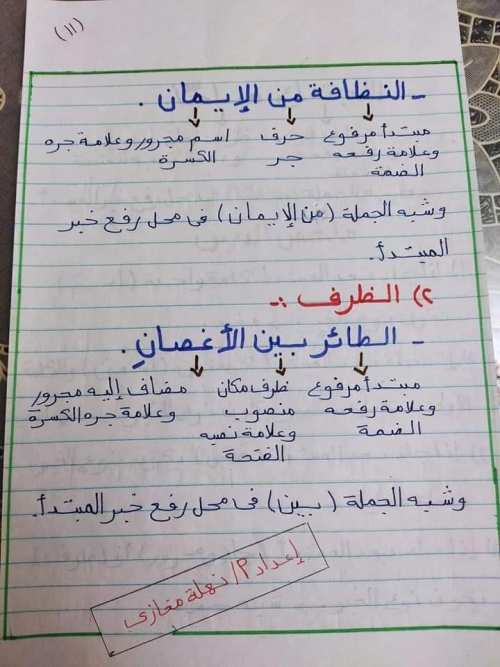 (١١)
- النظافة من الإيمان .
مبتدأ مرفوع حرف اسم مجرور وعلامة جره
وعلامة رفعه جر الكسرة
الضمة
وشبه الجملة (من الإيمان) فى محل رفع خبر
المبتدأ.
٢) الظرف :-
- الطائر بين الأغصانِ .
مبتدأ مرفوع ظرف مكان مضاف إليه مجرور
وعلامة رفعه منصوب وعلامة جره الكسرة
الضمة وعلامة نصبه
الفتحة
وشبه الجملة (بين) فى محل رفع خبر المبتدأ.
إعداد م/ نهلة مغازي